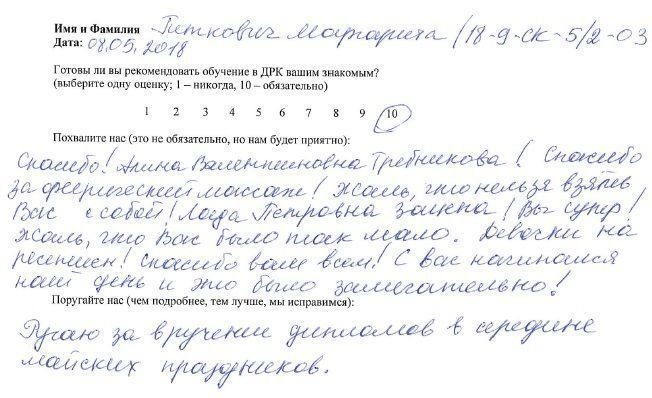 Имя и Фамилия Петкович Маргарита /18-9-СК-5/2-03
Дата: 08.05.2018
Готовы ли вы рекомендовать обучение в ДРК вашим знакомым?
(выберите одну оценку; 1 – никогда, 10 – обязательно)
1 2 3 4 5 6 7 8 9 10
Похвалите нас (это не обязательно, но нам будет приятно):
Спасибо! Алина Валентиновна Требникова! Спасибо
за феерический массаж! Жаль, что нельзя взять
Вас с собой! Лада Петровна Заикна! Вы супер!
Жаль, что Вас было так мало. Девочки на
ресепшен! Спасибо вам всем! С вас начинался
наш день и это было замечательно!
Поругайте нас (чем подробнее, тем лучше, мы исправимся):
Ругаю за вручение дипломов в середине
майских праздников.